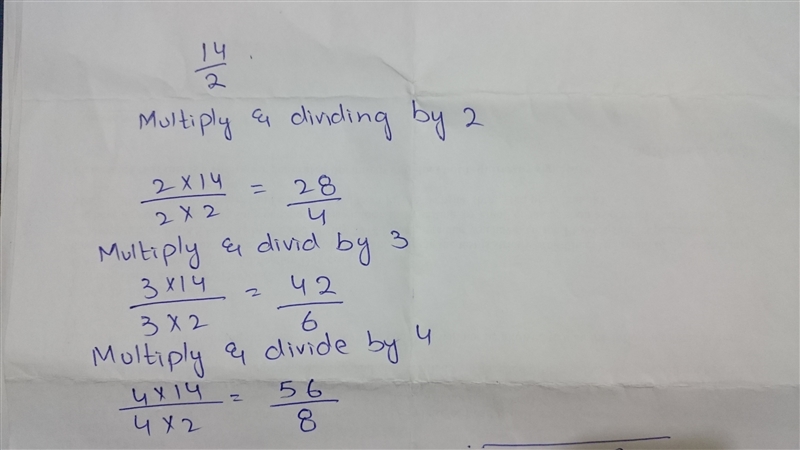 14
2
Multiply & dividing by 2
2 × 14 = 28
2 × 2 4
Multiply & divid by 3
3 × 14 = 42
3 × 2 6
Multiply & divide by 4
4 × 14 = 56
4 × 2 8